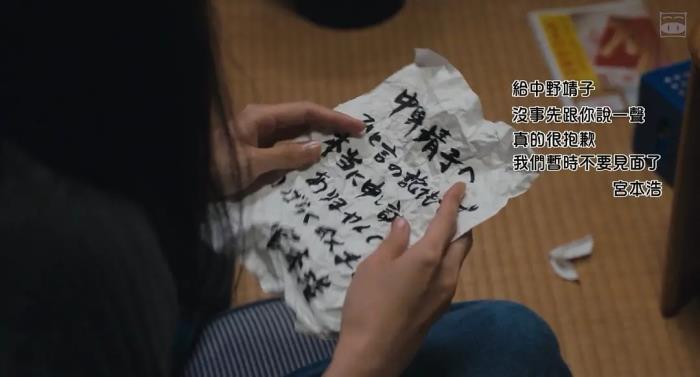 中野靖子へ
ひと言の説
本当に申し
ありません
宮本浩
給中野靖子
沒事先跟你說一聲
真的很抱歉
我們暫時不要見面了
宮本浩